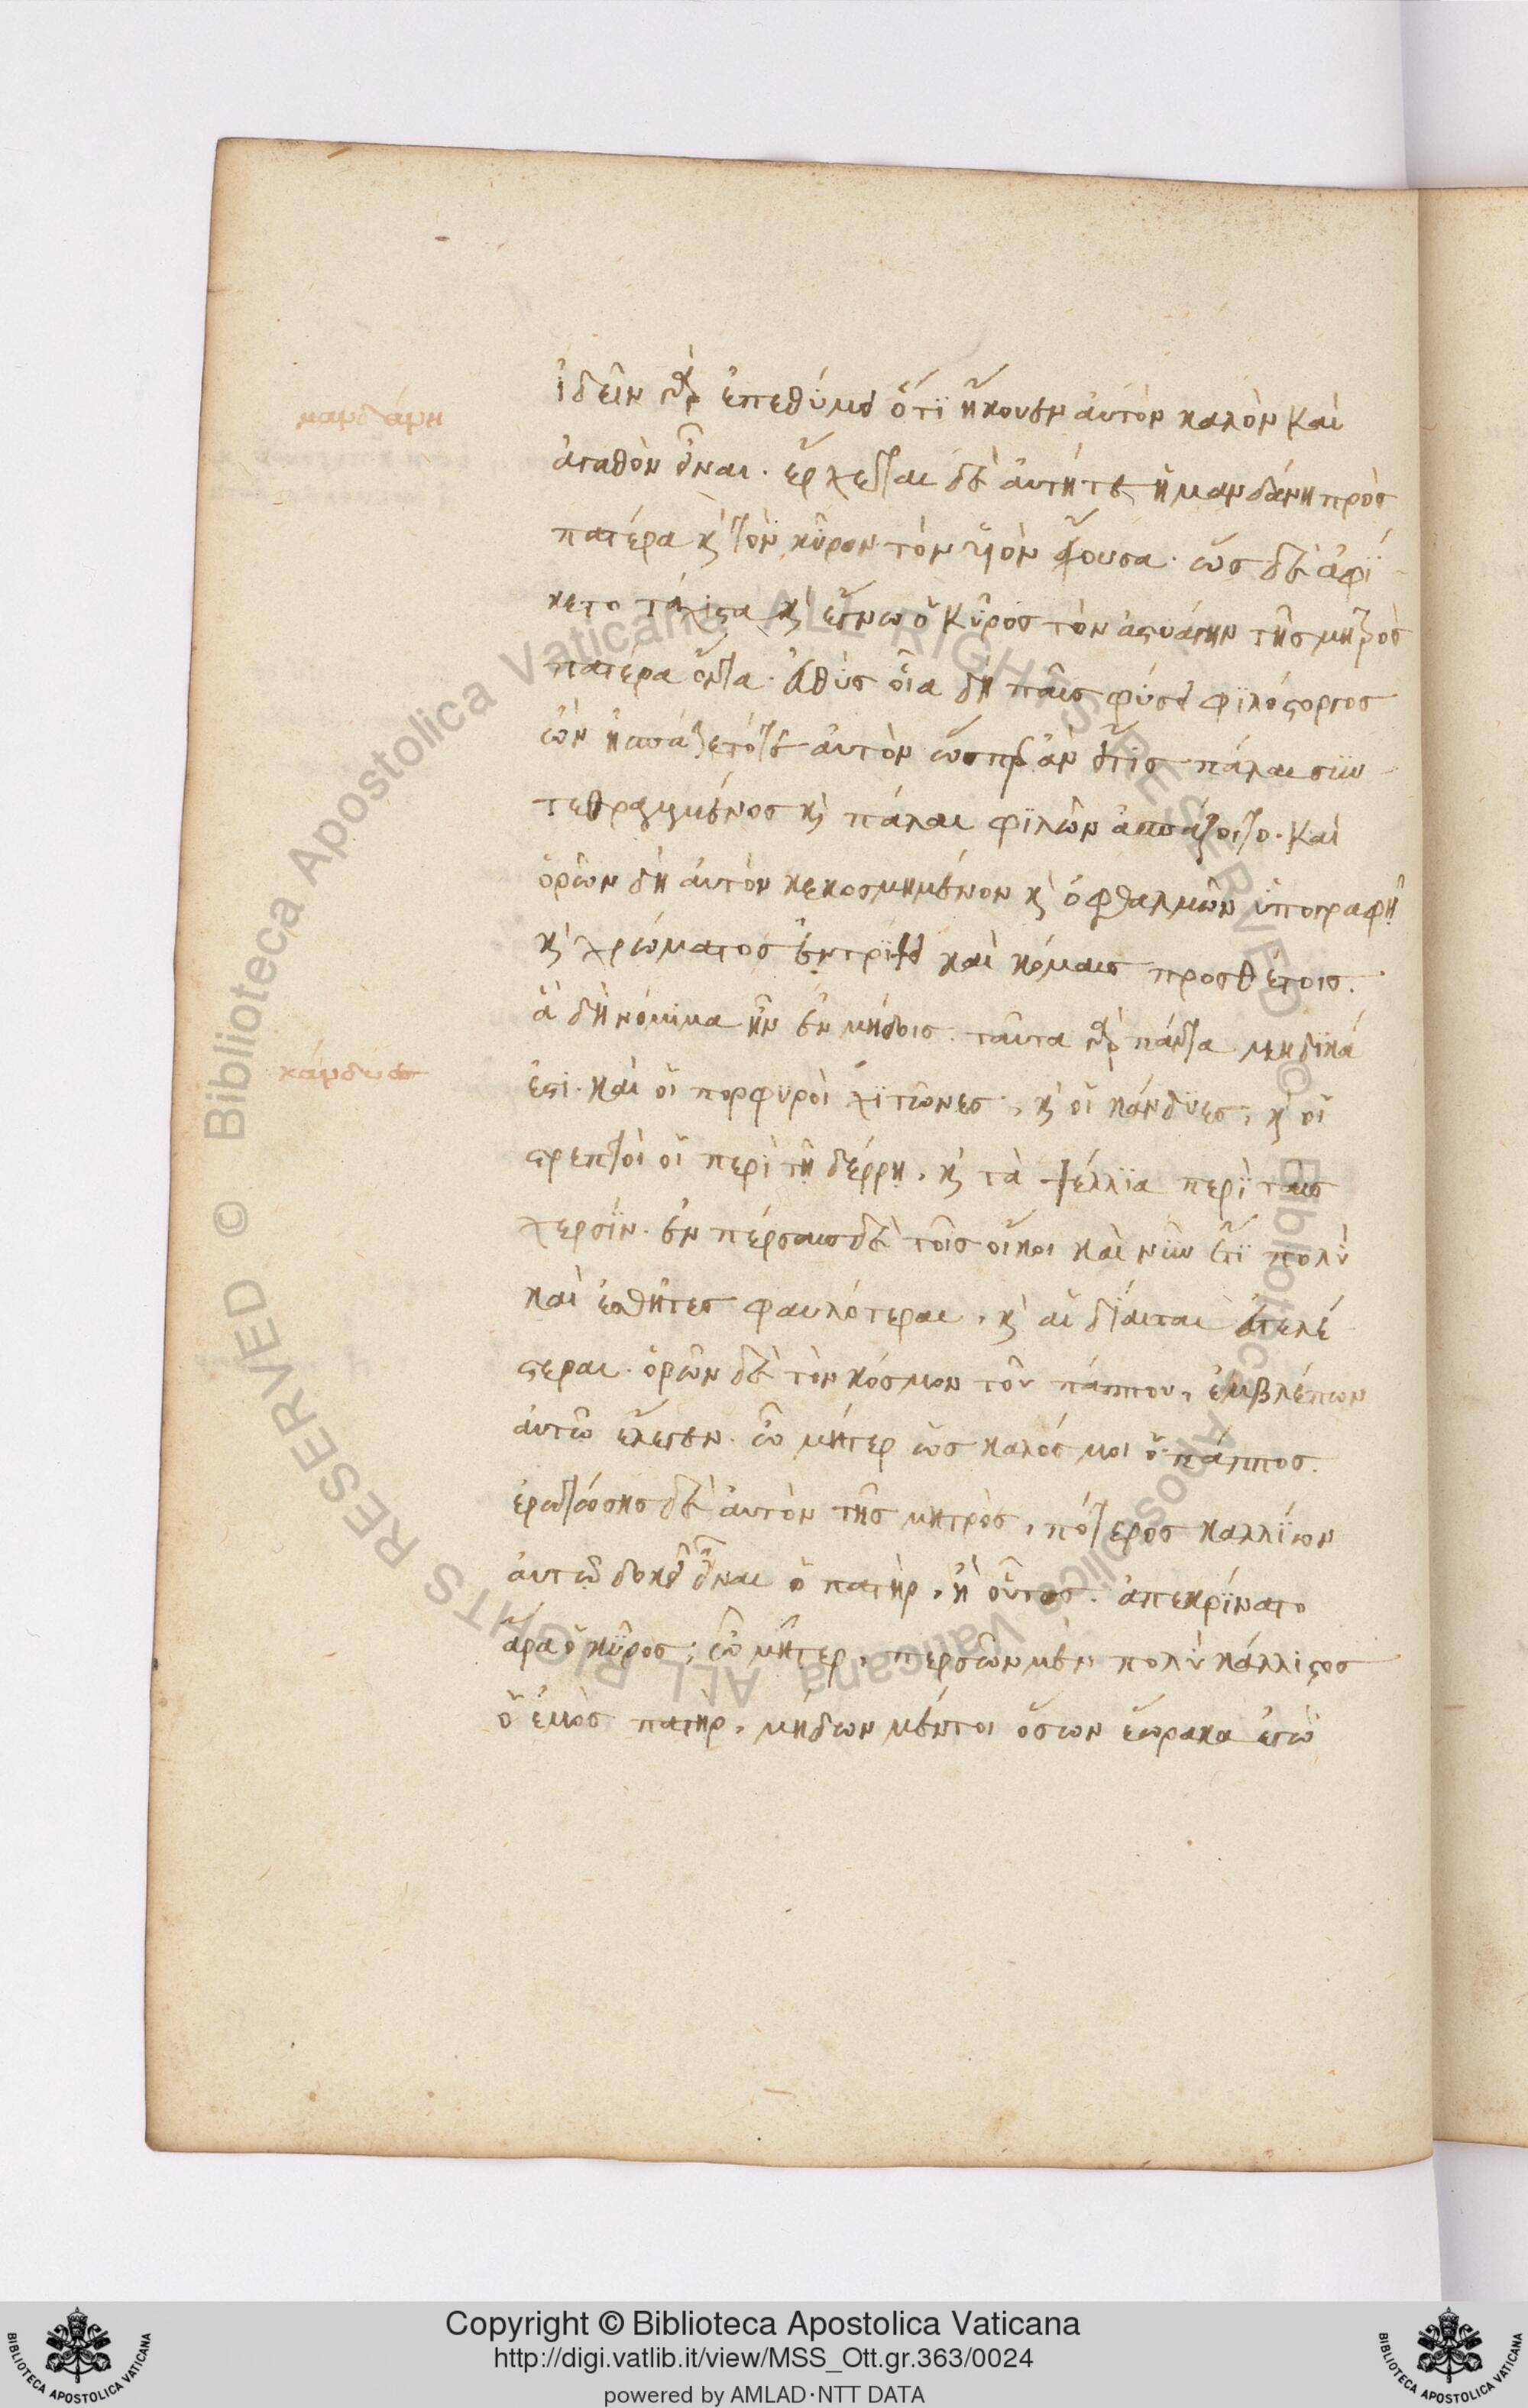 μανδάνη
ἰδεῖν γὰρ ἐπεθύμει ὅτι ἤκουεν αὐτὸν καλὸν καὶ
ἀγαθὸν εἶναι. ἔρχεται δὲ αὐτή τε ἡ μανδάνη πρὸς
πατέρα καὶ τὸν κῦρον τὸν υἱὸν ἔχουσα. ὡς δὲ ἀφί
κετο τάχιστα καὶ ἔγνω ὁ Κῦρος τὸν ἀστυάγην τῆς μητρὸς
πατέρα ὄντα. εὐθὺς οἷα δὴ παῖς φύσει φιλόστοργος
ὢν ἠσπάζετό τε αὐτὸν ὥσπερ ἂν εἴ τις πάλαι συν
τεθραμμένος καὶ πάλαι φιλῶν ἀσπάζοιτο. Καὶ
ὁρῶν δὴ αὐτὸν κεκοσμημένον καὶ ὀφθαλμῶν ὑπογραφῇ
καὶ χρώματος ἐντρίψει καὶ κόμαις προσθέτοις.
ἃ δὴ νόμιμα ἦν ἐν μήδοις. ταῦτα γὰρ πάντα μηδικά
κάνδυς
ἐστι. καὶ οἱ πορφυροὶ χιτῶνες, καὶ οἱ κάνδυες, καὶ οἱ
στρεπτοὶ οἱ περὶ τῇ δέρρῃ, καὶ τὰ ψέλλια περὶ ταῖς
χερσίν. ἐν πέρσαις δὲ τοῖς οἴκοι καὶ νῦν ἔτι πολὺ
καὶ ἐσθῆτες φαυλότεραι, καὶ αἱ δίαιται εὐτελέ
στεραι. ὁρῶν δὲ τὸν κόσμον τοῦ πάππου, ἐμβλέπων
αὐτῷ ἔλεγεν. ὦ μῆτερ ὡς καλός μοι ὁ πάππος.
ἐρωτώσης δὲ αὐτὸν τῆς μητρὸς, πότερος καλλίων
αὐτῷ δοκεῖ εἶναι ὁ πατὴρ, ἢ οὗτος. ἀπεκρίνατο
ἄρα ὁ κῦρος; ὦ μῆτερ, περσῶν μὲν πολὺ κάλλιστος
ὁ ἐμὸς πατὴρ, μήδων μέντοι ὅσων ἑώρακα ἐγὼ
Copyright © Biblioteca Apostolica Vaticana
http://digi.vatlib.it/view/MSS_Ott.gr.363/0024
powered by AMLAD·NTT DATA